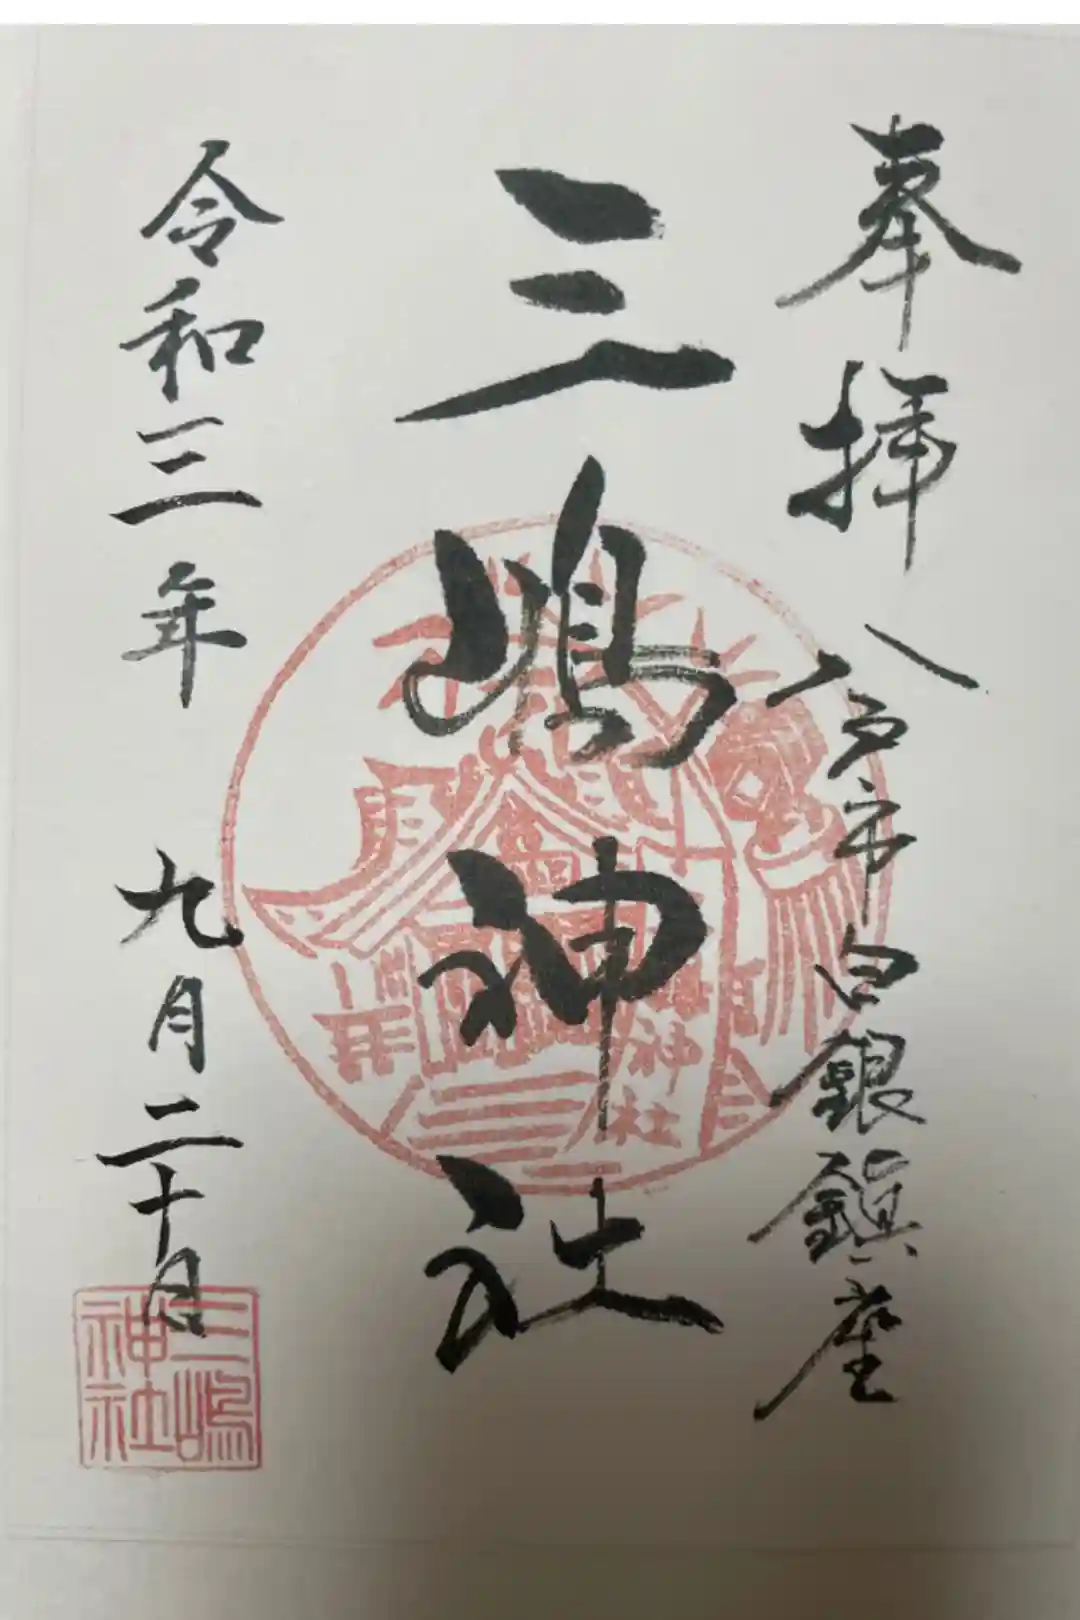 奉拝
八戸市白銀鎮座
三嶋神社
令和三年 九月二十日
三嶋
神社
神社